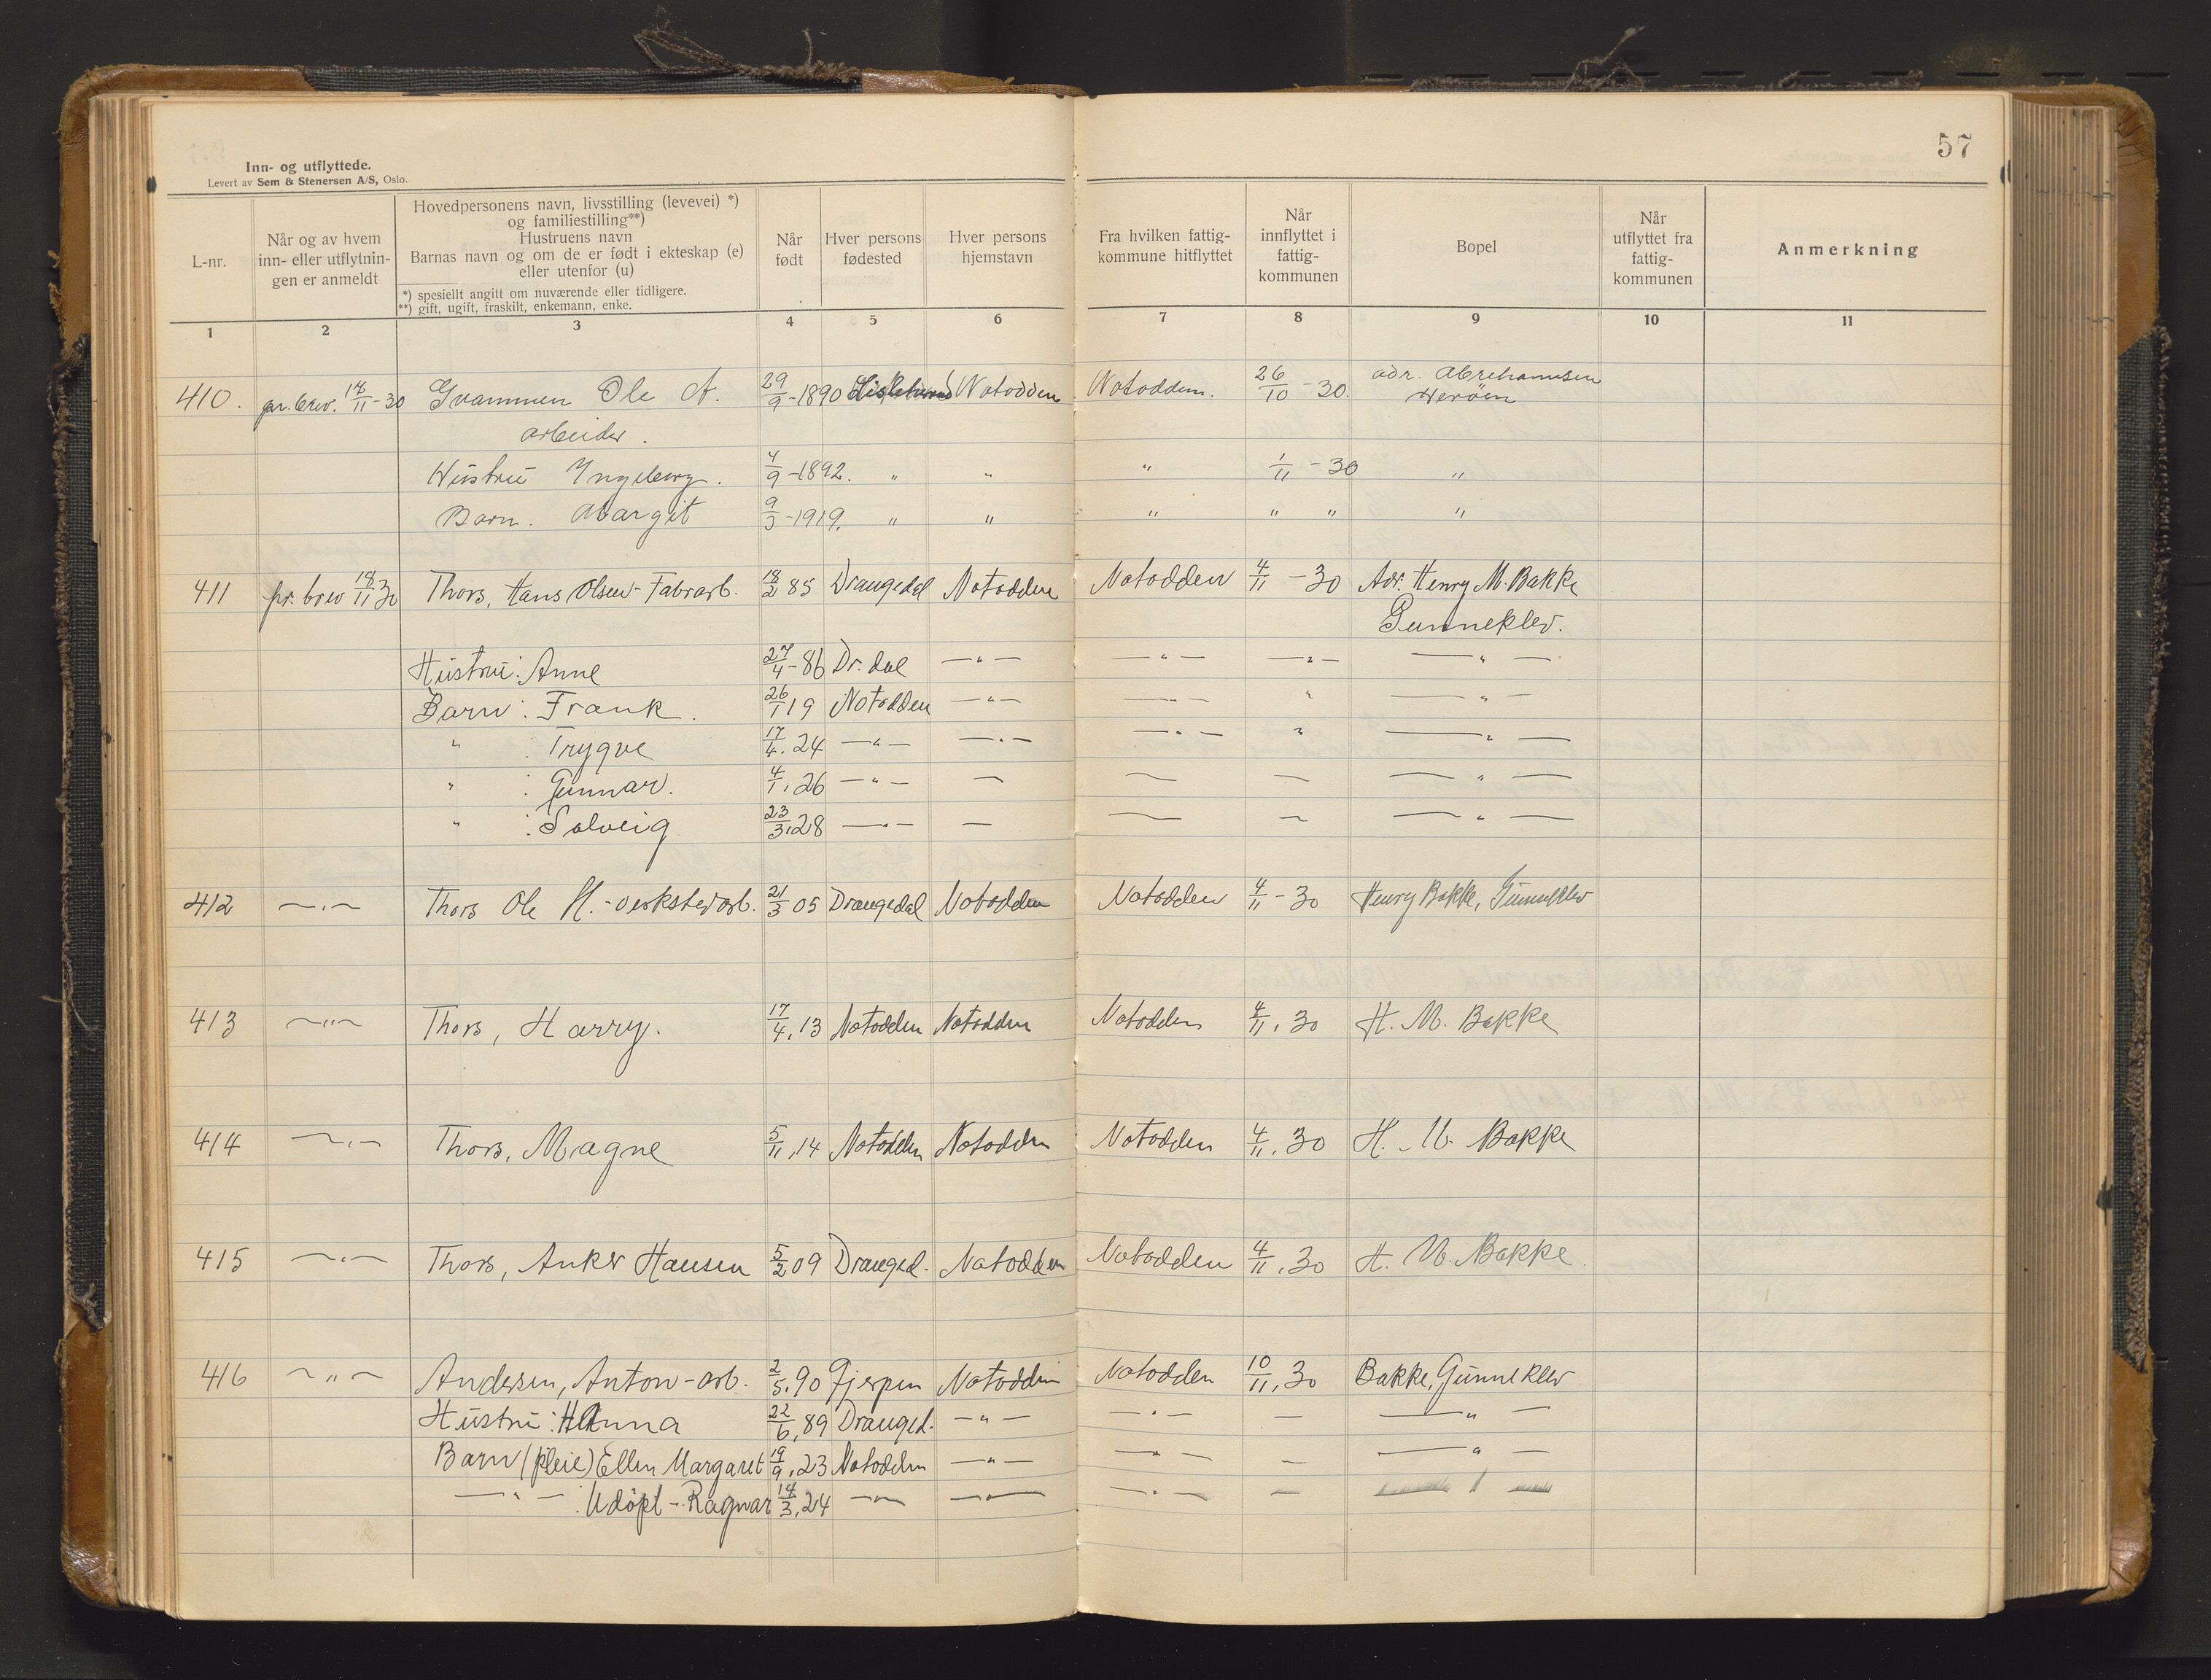 57
Inn- og utflyttede.
Levert av Sem & Stenersen A/S, Oslo.
L-nr.
Når og av hvem
inn- eller utflytnin-
gen er anmeldt
Hovedpersonens navn, livsstilling (levevei) *)
og familiestilling**)
Hustruens navn
Barnas navn og om de er født i ekteskap (e)
eller utenfor (u)
*) spesiellt angitt om nuværende eller tidligere.
**) gift, ugift, fraskilt, enkemann, enke.
Når
født
Hver persons
fødested
Hver persons
hjemstavn
Fra hvilken fattig-
kommune hitflyttet
Når
innflyttet i
fattig-
kommunen
Bopel
Når
utflyttet fra
fattig-
kommunen
Anmerkning
1 2 3 4 5 6 7 8 9 10 11
410. pr. brev. 18/11-30 Gvammen Ole A. 29/9-1890 Notodden Notodden. 26/10-30. adr. Abrehamsen
Herøen
arbeider.
Hustru Ingeborg. 4/9-1892. " " " 1/11-30 "
Barn. Margit 9/3-1919. " " " " " "
411 pr. brev 18/11 30 Thors, Hans Olsen - Fabrarb. 18/2 85 Drangedal Notodden Notodden 4/11-30 Adr. Henry M. Bakke
Gunneklev.
Hustru: Anne 27/4-86 Dr.dal -"- -"- -"- -"-
Barn: Frank. 26/1 19 Notodden -"- -"- " -"-
" : Trygve 17/4. 24 -"- -"- -"- " -"-
" : Gunnar. 4/1. 26 -"- - - - -"-
" : Solveig 23/3. 28 -"- - - - -"-
412 -"- Thors Ole H. - verkstedarb. 21/3 05 Drangedal Notodden Notodden 4/11-30 Henry Bakke, Gunneklev
413 -"- Thors, Harry. 17/4. 13 Notodden Notodden Notodden 4/11. 30 H. M. Bakke
414 -"- Thors, Magne 5/11. 14 Notodden Notodden Notodden 4/11. 30 H. M. Bakke
415 -"- Thors, Anker Hansen 5/2 09 Dranged. Notodden Notodden 4/11. 30 H. M. Bakke
416 -"- Andersen, Anton - arb. 2/5. 90 Gjerpen Notodden Notodden 10/11. 30 Bakke, Gunneklev
Hustru: Hanna 22/6. 89 Dranged. -"- -"- - -"-
Barn (pleie) Ellen Margaret 19/9. 23 Notodden -"- -"- - -"-
-"- : Udöpt - Ragnar 14/3. 24 -"- -"- -"- - -"-